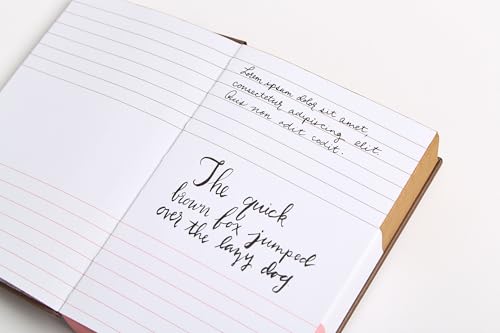 Lorem ipsum dolor sit amet,
consectetur adipiscing elit.
Quis non odit
The quick
brown fox jumped
over the lazy dog